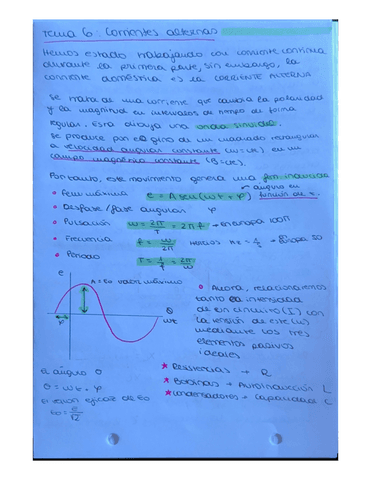 Tema 6: Corrientes alternas
Hemos estado trabajando con corriente continua
durante la primera parte, sin embargo, la
corriente doméstica es la CORRIENTE ALTERNA
Se trata de una corriente que cambia la polaridad
y la magnitud en intervalos de tiempo de forma
regular. Esta dibuja una onda sinusoidal.
Se produce por el giro de un cuadrado rectangular
a velocidad angular constante (ω = cte) en un
campo magnético constante (B = cte).
Por tanto, este movimiento genera una fem inducida
• Fem máxima e = A sen(ωt + φ) ángulo en función de t.
• Desfase/fase angular φ
• Pulsación ω = 2π/T = 2πf → en Europa 100π
• Frecuencia f = ω/2π Hercios Hz = 1/s → Europa 50
• Periodo T = 1/f = 2π/ω
e
A = Eo valor máximo
θ
ωt
φ
• Ahora, relacionaremos
tanto la intensidad
de un circuito (I) con
la tensión de este (V)
mediante los tres
elementos pasivos
ideales
El ángulo θ
θ = ωt + φ
* Resistencias → R
* Bobinas → Autoinducción L
* Condensadores → Capacidad C
El valor eficaz de Eo